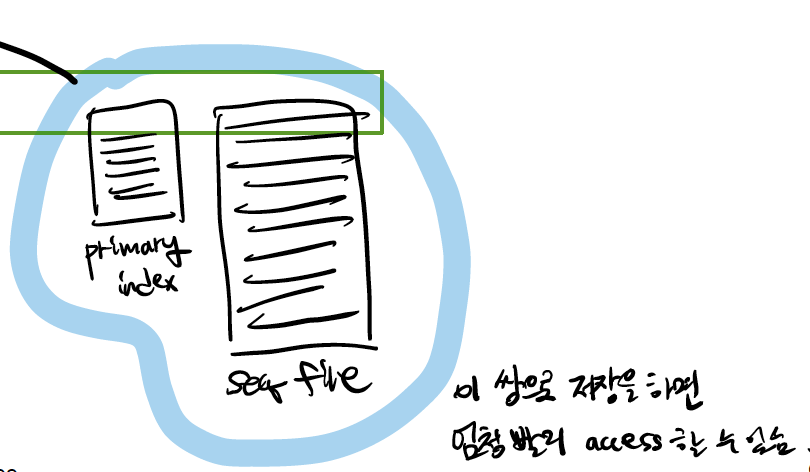 primary
index
seq file
이 쌍으로 저장을 하면
엄청 빨리 access 할 수 있음